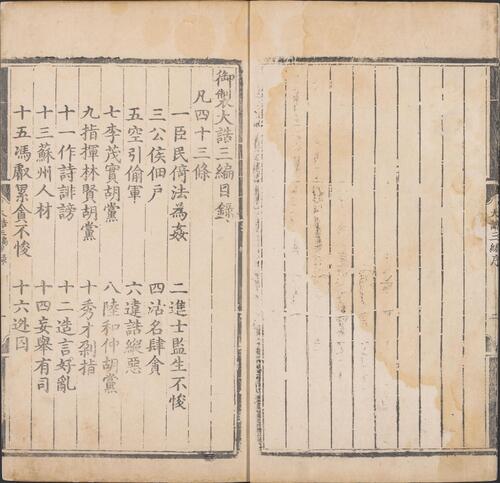 御製大誥三編目錄
凡四十三條
一臣民倚法為姦 二進士監生不悛
三公侯佃戶 四沽名肆貪
五空引偷軍 六違誥縱惡
七李茂實胡黨 八陸和仲胡黨
九指揮林賢胡黨 十秀才剁指
十一作詩誹謗 十二造言好亂
十三蘇州人材 十四妄舉有司
十五馮㪉累貪不悛 十六逃囚
三編序